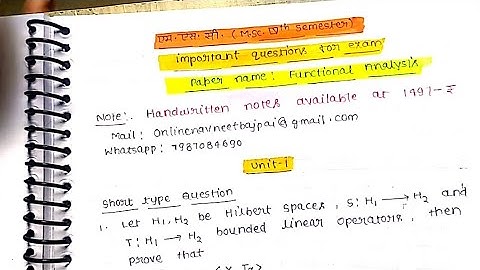 एम. एस. सी. (M.Sc. IVth semester)
important questions for exam
Paper name: Functional Analysis
Note: Handwritten notes available at 149/- ₹
Mail: Onlinenavneetbajpai@gmail.com
Whatsapp: 7987084690
Unit-I
Short type Question
1. Let H₁, H₂ be Hilbert spaces, S: H₁ → H₂ and
T: H₁ → H₂ bounded linear operators, then
prove that